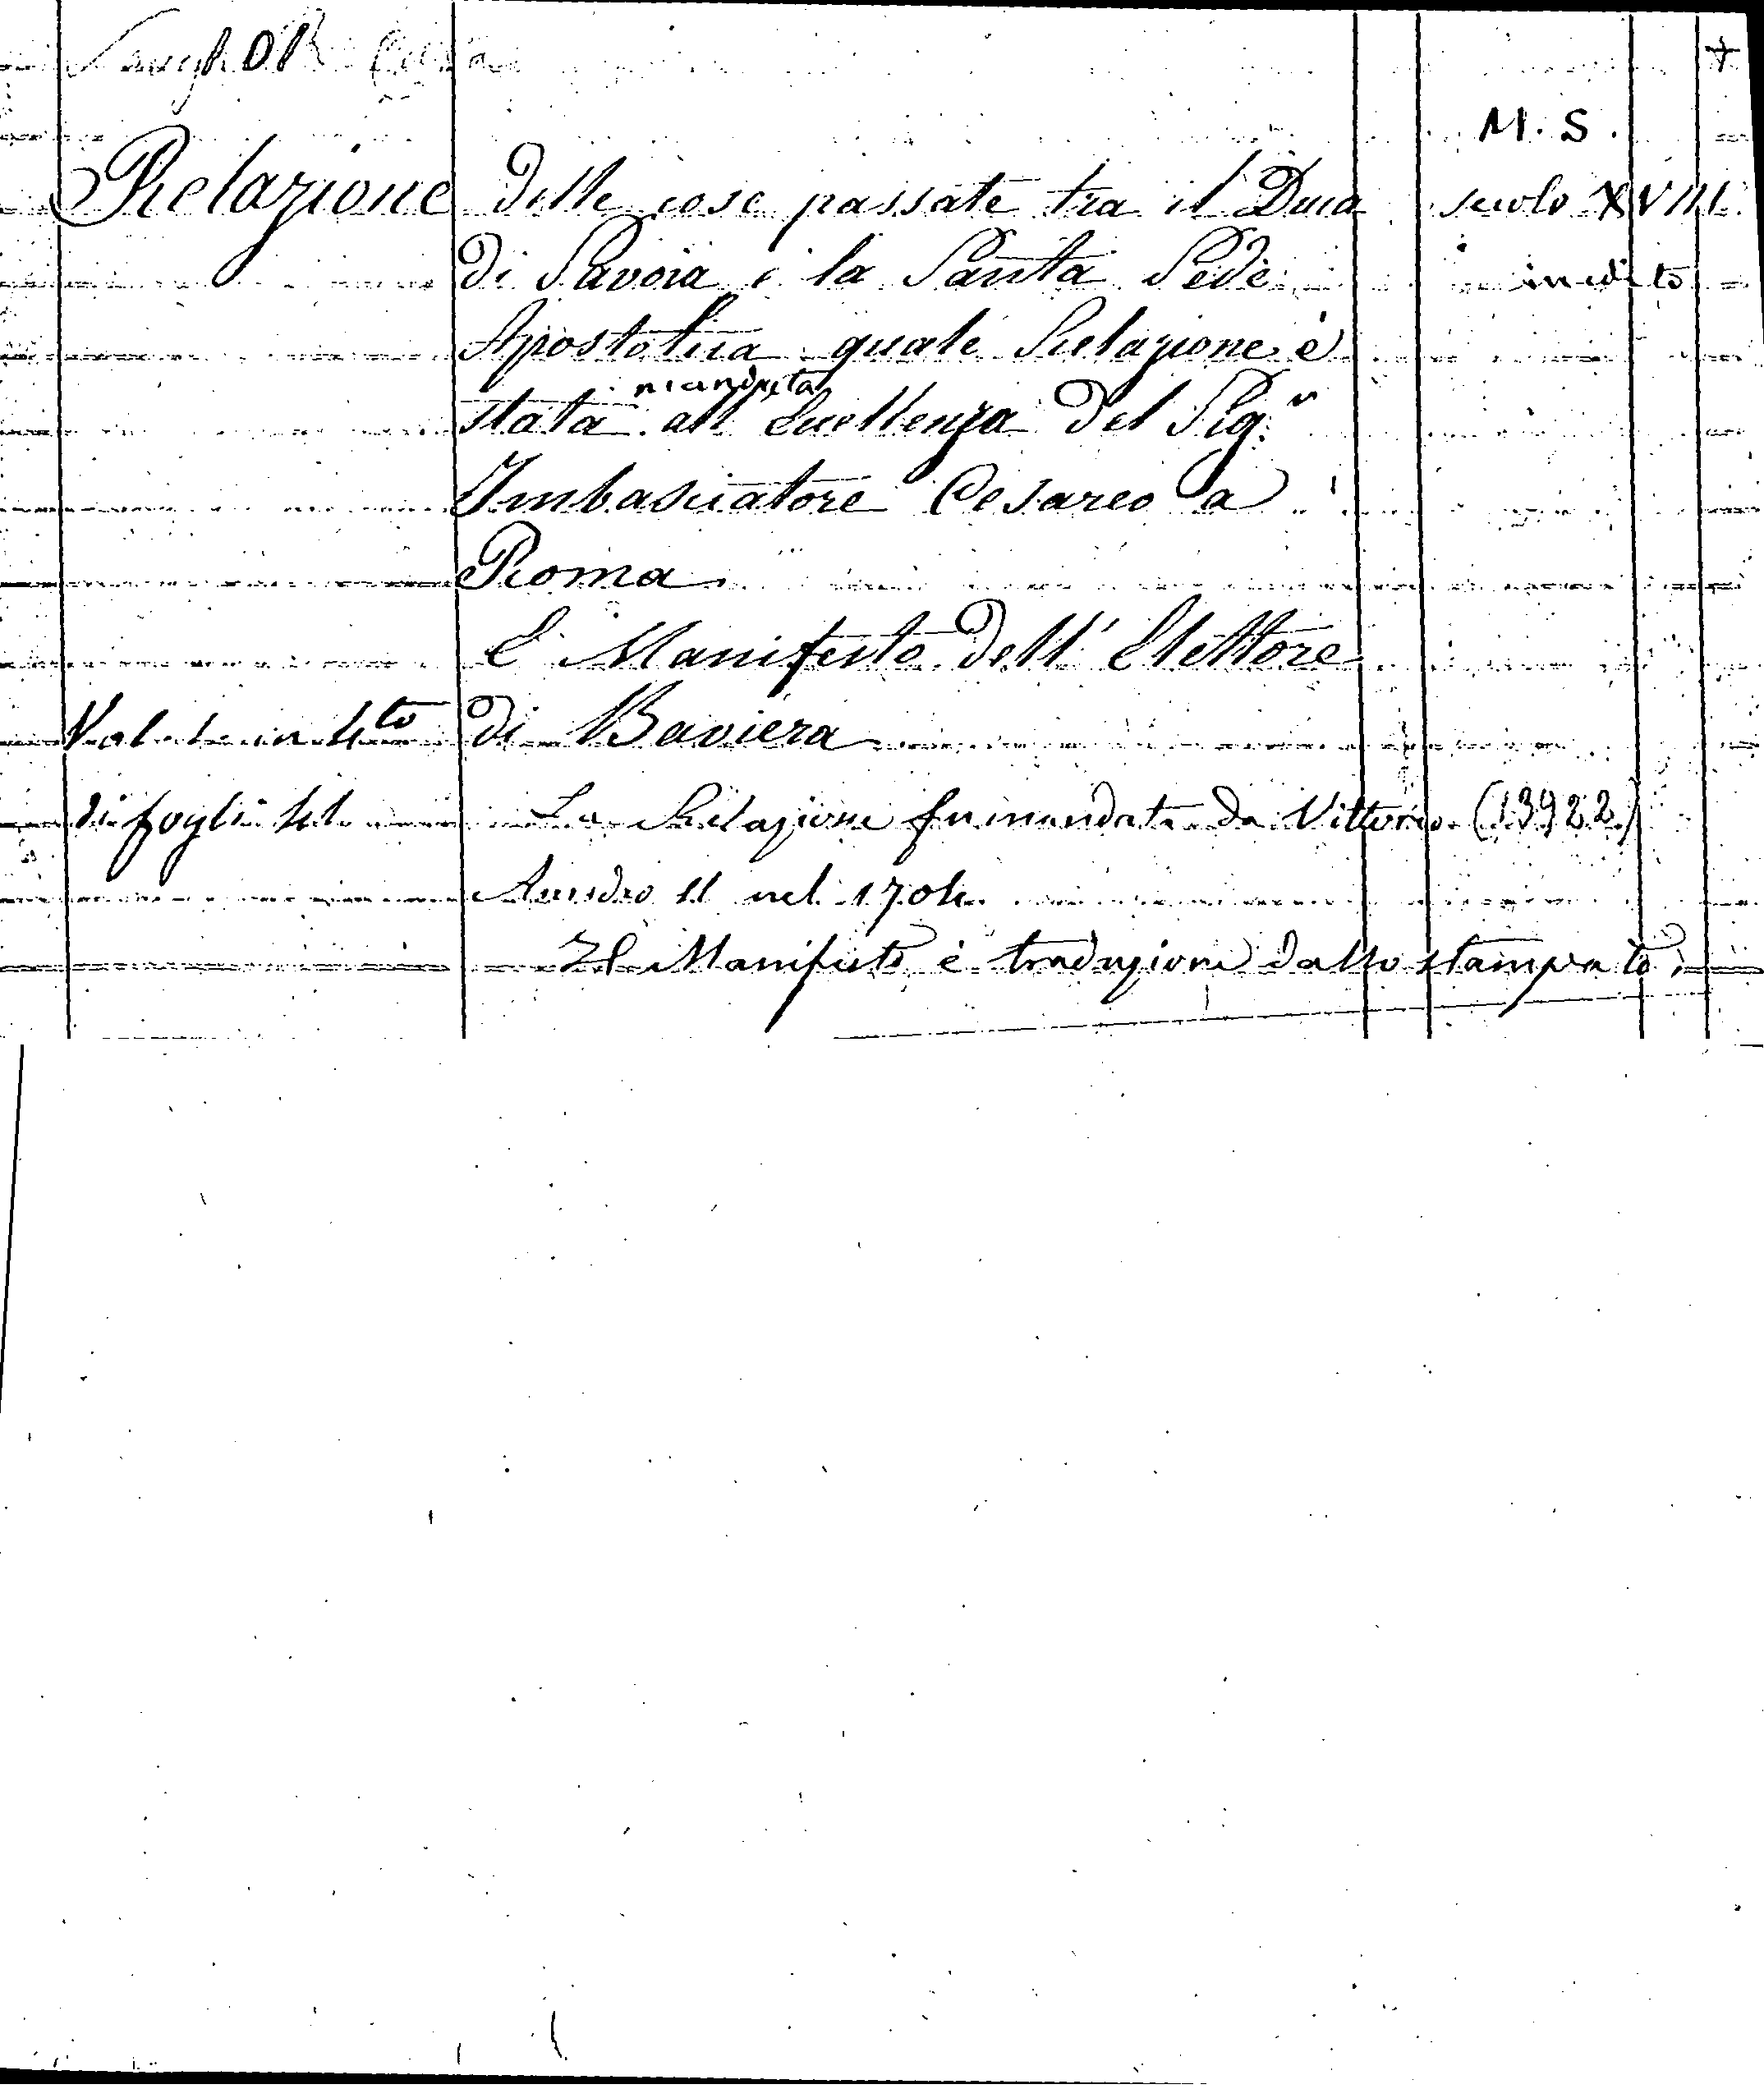 M. S.
Relazione delle cose passate tra il Duca secolo XVIII
di Savoia e la Santa Sede inedito
Apostolica quale Relazione è
mandata
stata all' Eccellenza del Sig.r
Imbasciatore Cesareo a
Roma
E Manifesto dell' Elettore
Vol. 1 in 4to di Baviera
di fogli La Relazione fu mandata da Vittorio (13922)
Amedeo II nel 1704
Il Manifesto è traduzione dallo stampato.